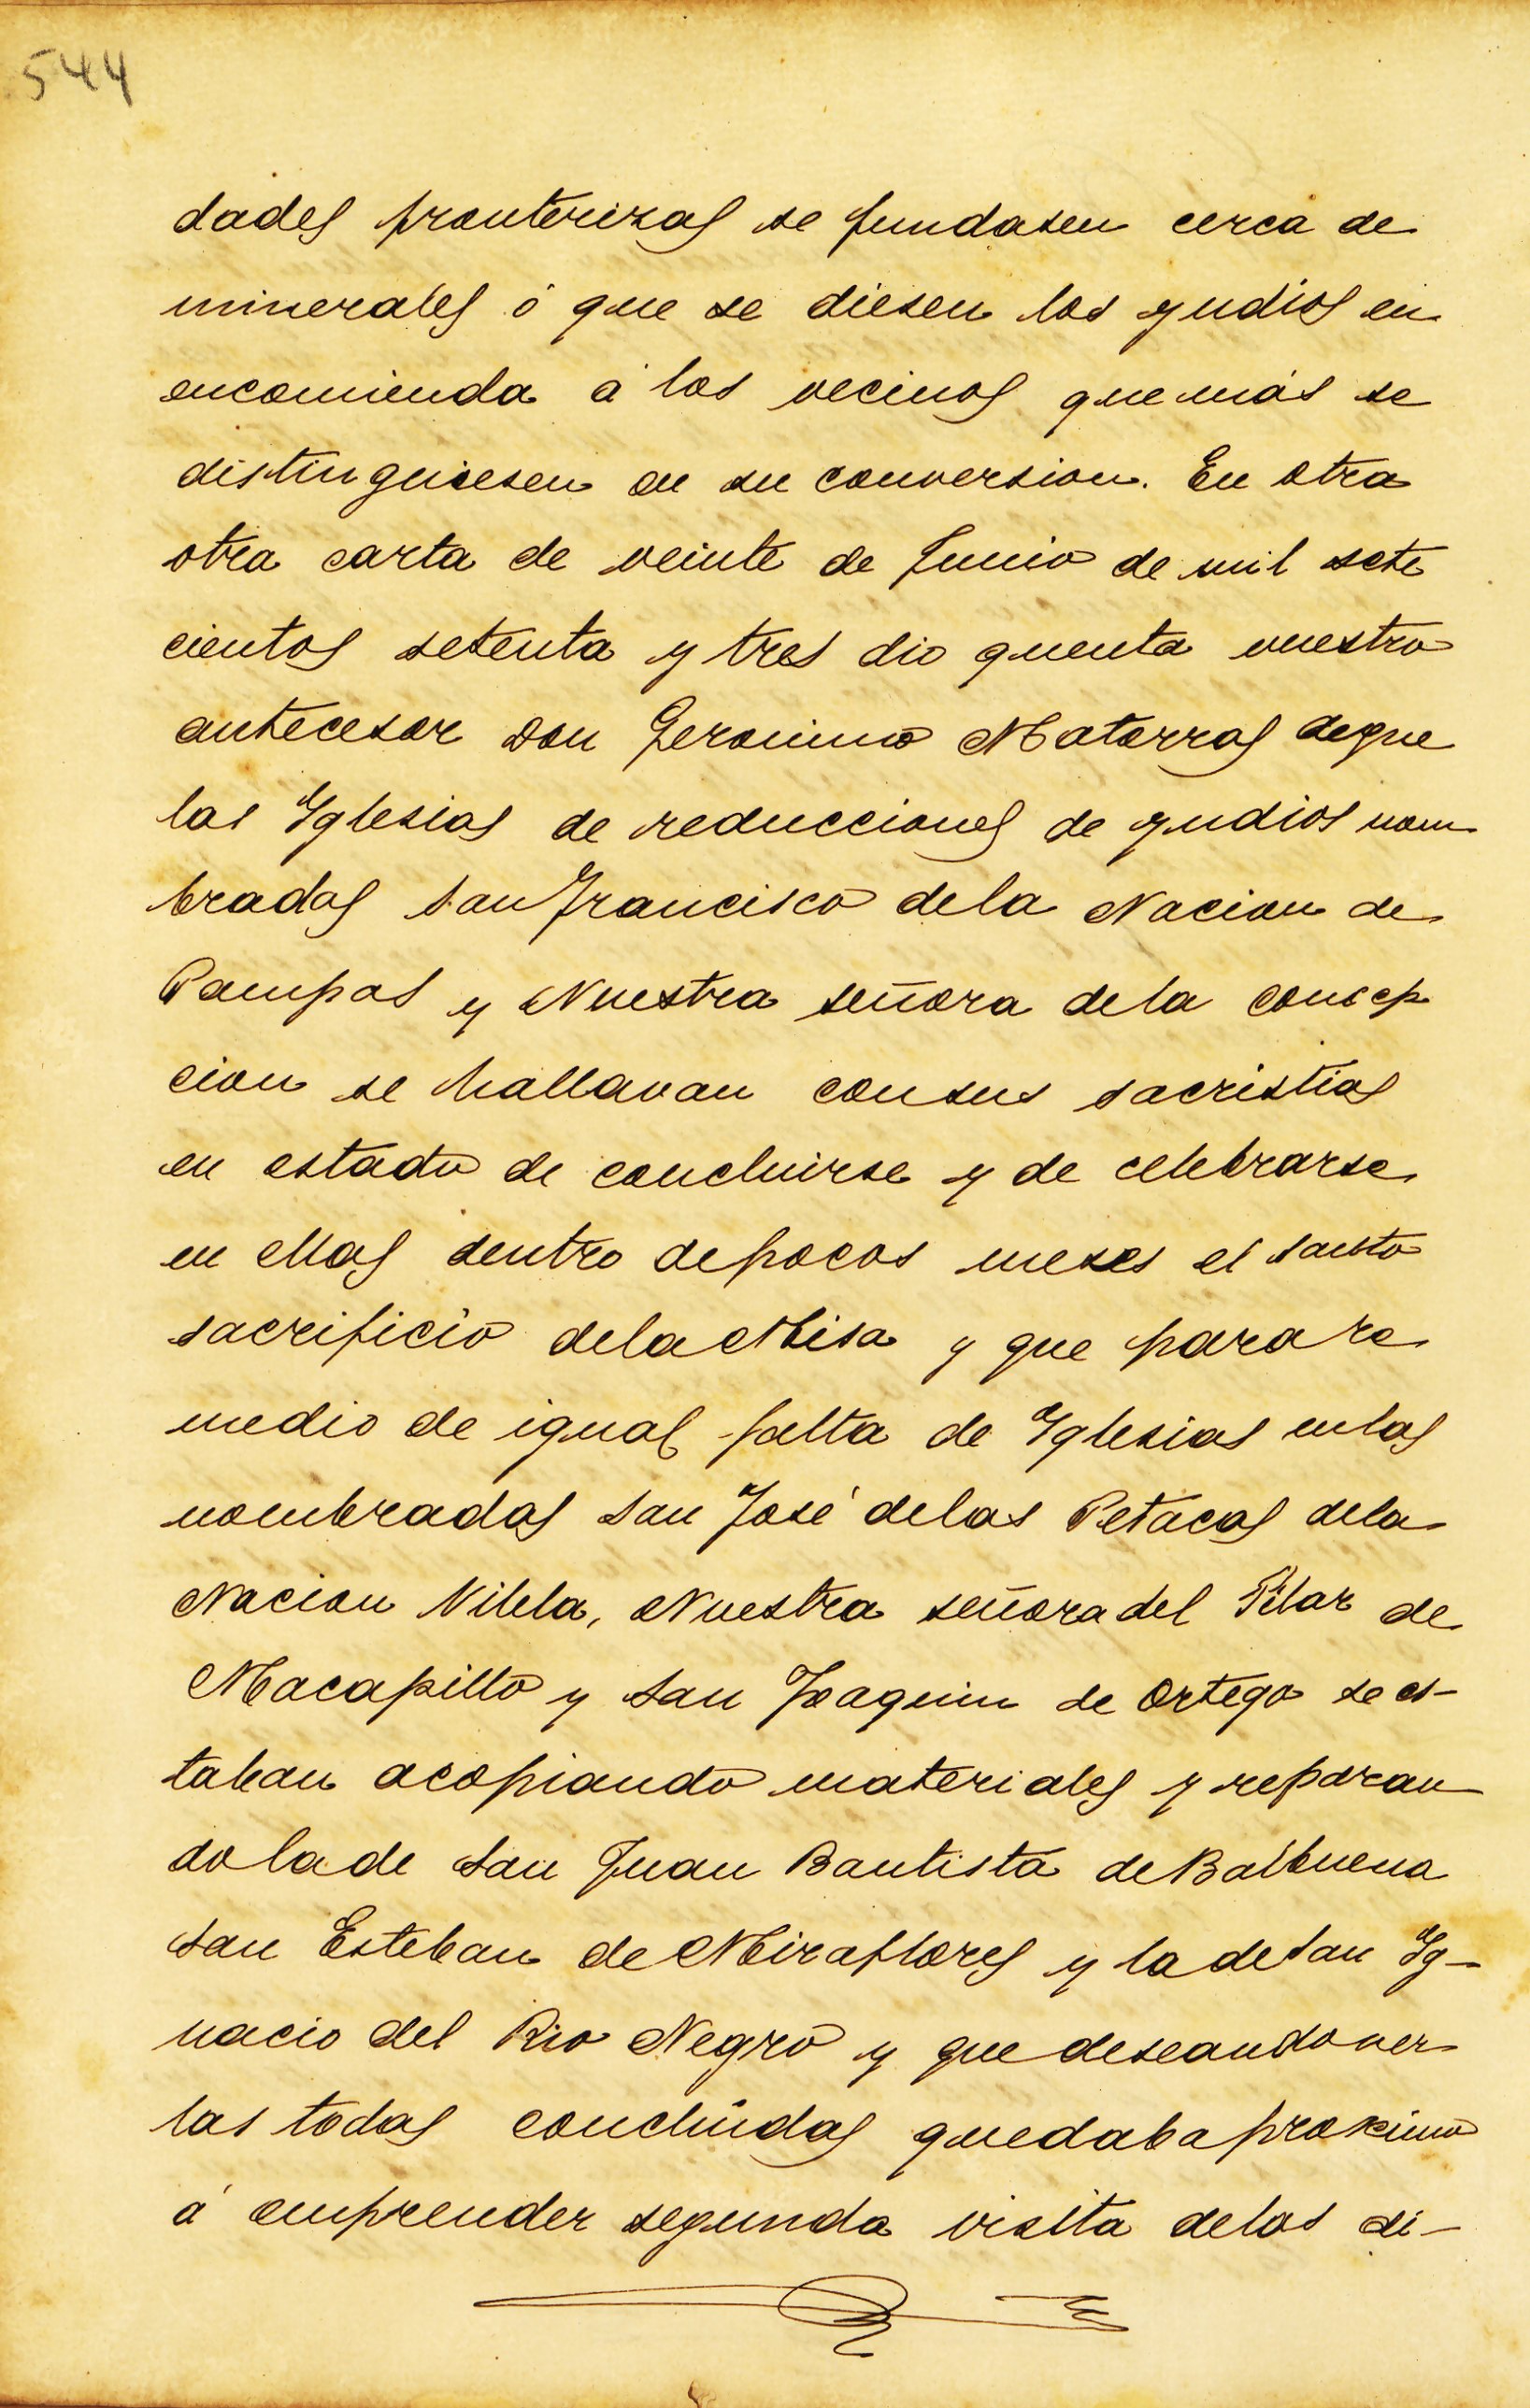 544
dades fronterizas se fundasen cerca de
minerales ó que se diesen los yndios en
encomienda á los vecinos que más se
distinguiesen en su conversion. En otra
otra carta de veinte de Junio de mil sete
cientos setenta y tres dio quenta vuestro
antecesor Don Geronimo Matorras deque
las Yglesias de reducciones de yndios nom
bradas San Francisco dela Nacion de
Pampas y Nuestra señora dela concep
cion se hallavan consus sacristias
en estado de concluirse y de celebrarse
en ellas dentro depocos meses el santo
sacrificio dela Misa y que para re
medio de igual falta de Yglesias enlas
nombradas San José delas Petacas dela
Nacion Vilela, Nuestra señora del Pilar de
Macapillo y San Joaquin de Ortega se es-
taban acopiando materiales y reparan
do la de San Juan Bautista de Balbuena
San Esteban de Miraflores y la de San Ig-
nacio del Rio Negro y que deseando ver
las todas concluidas quedaba proximo
á emprender segunda visita delas di-